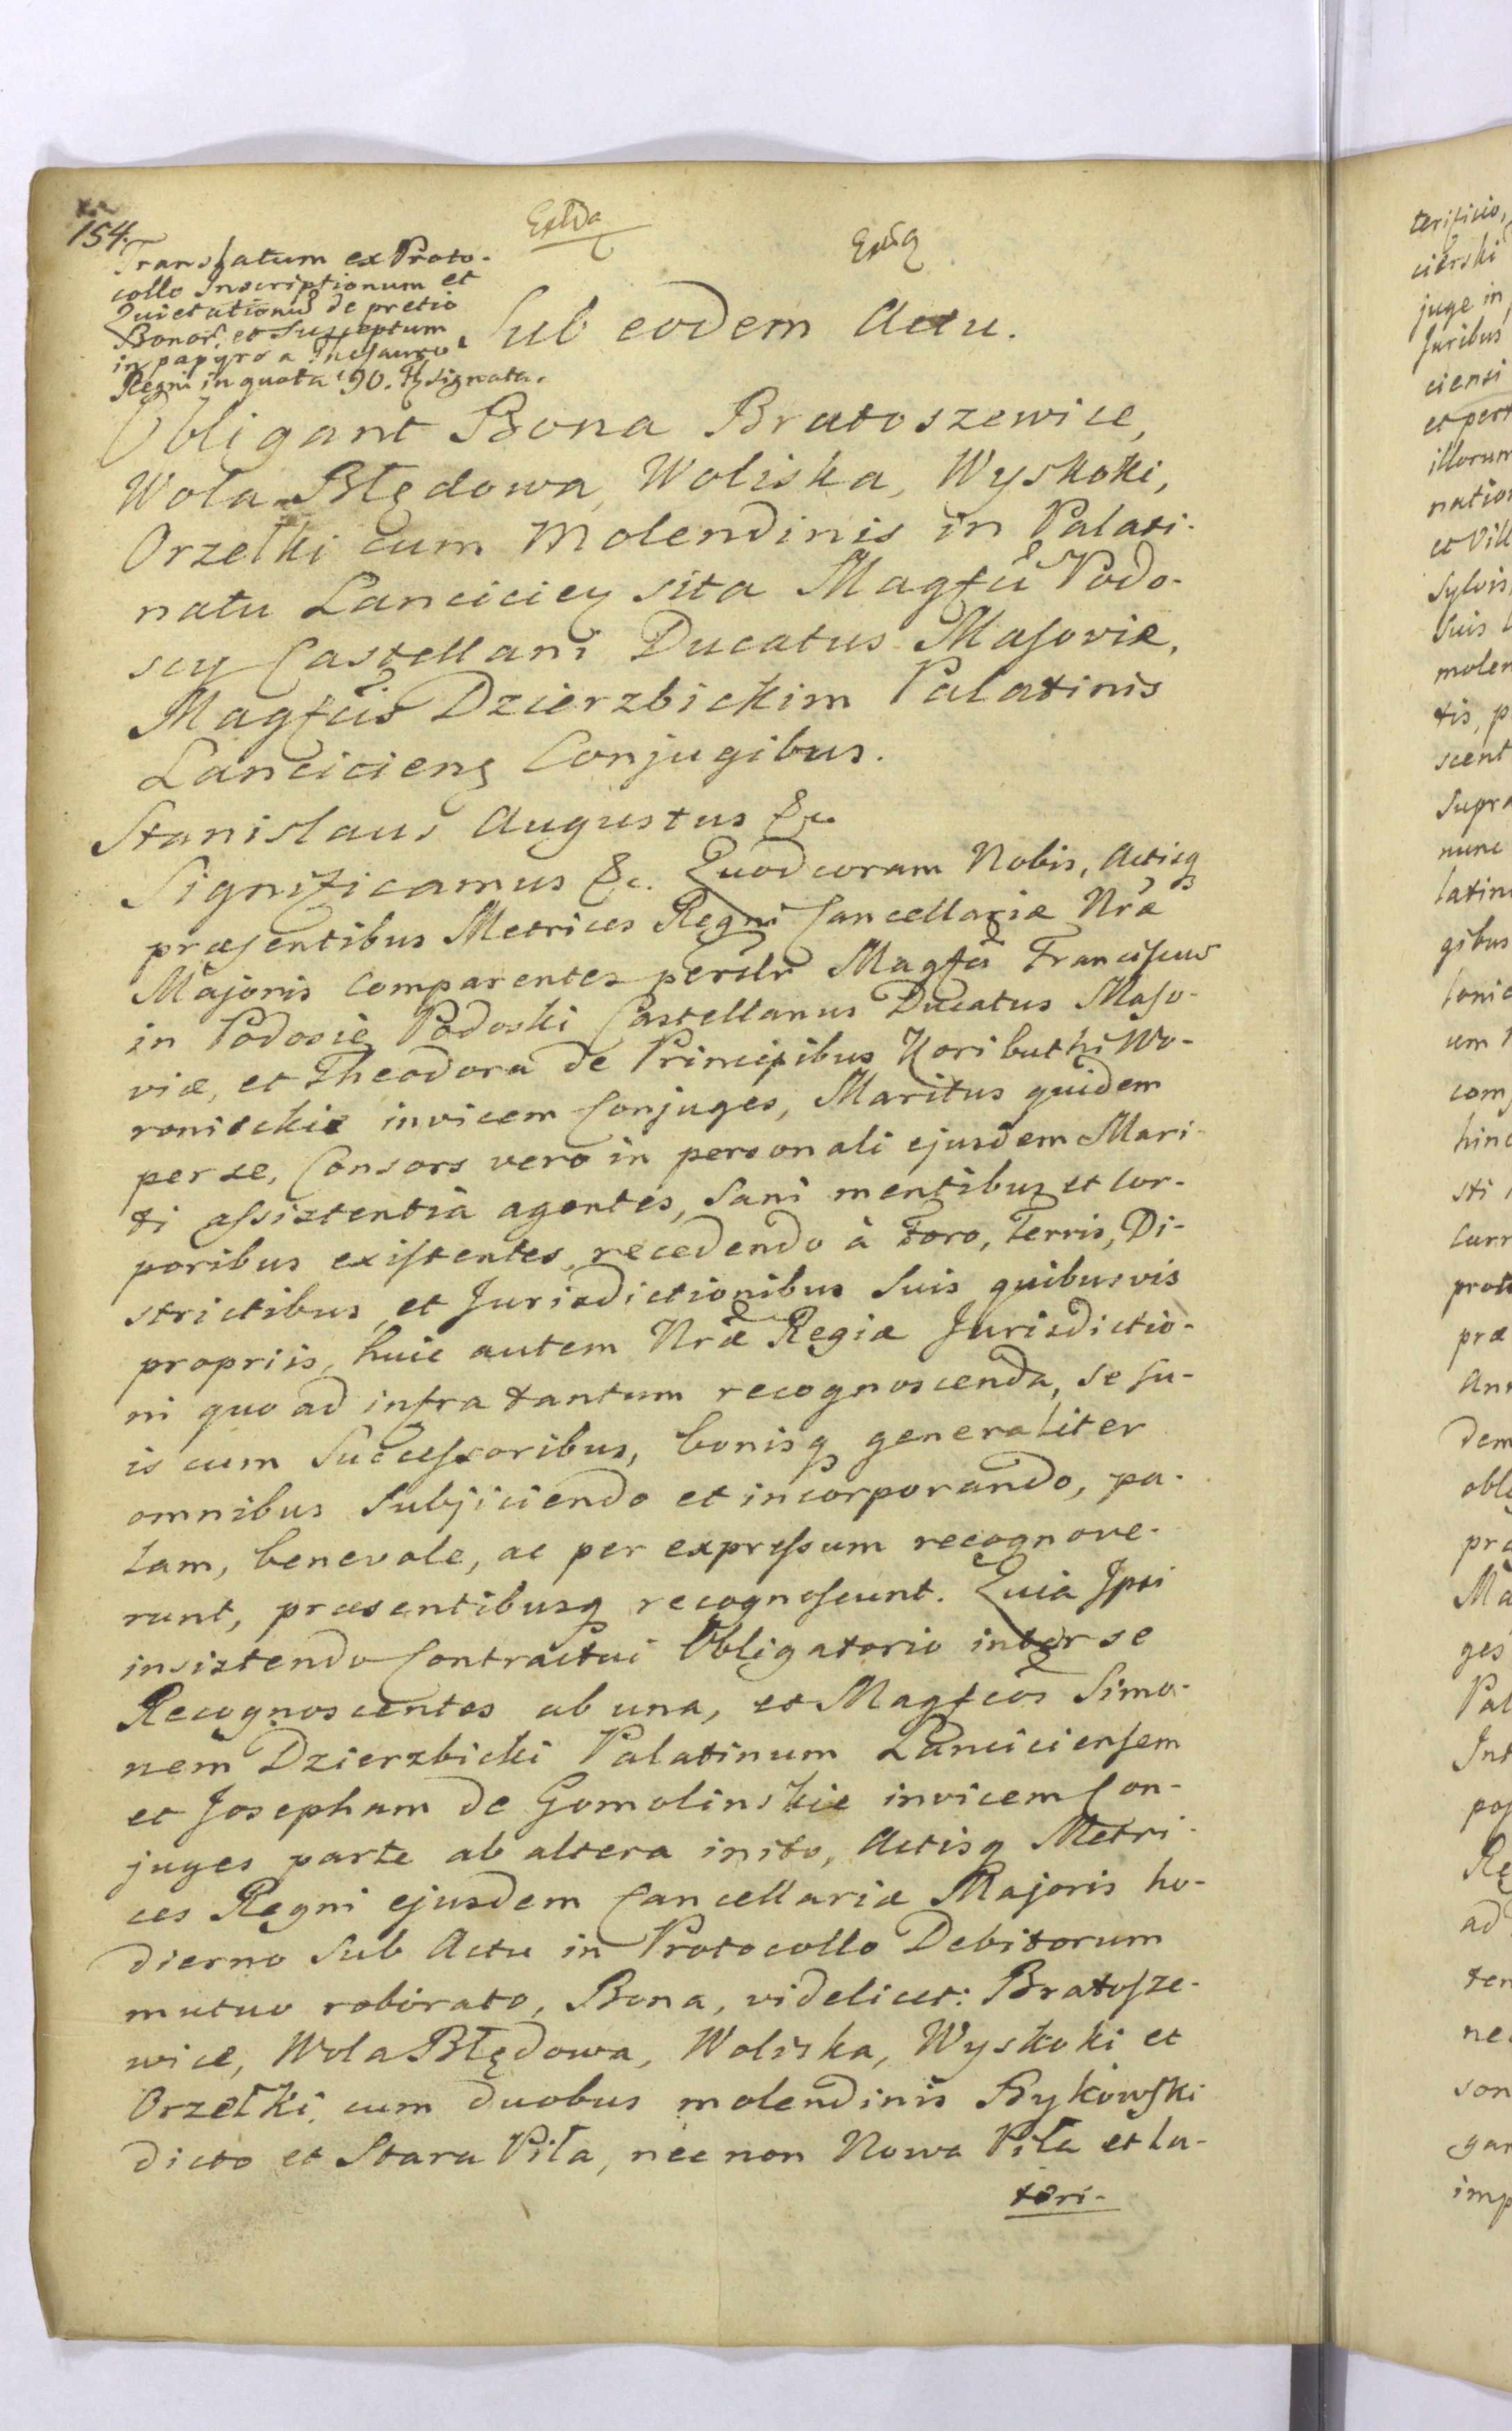 154.
Extda
Extda
Translatum ex Proto-
collo Inscriptionum et
Quietationũ de pretio
Bonor. et Susceptum
in papyro a Thesauro
Regni in quota 90. signata.
Sub eodem Actu.
Obligant Bona Bratoszewice,
Wola Błędowa, Woliska, Wyskoki,
Orzełki cum Molendinis in Palati-
natu Lanciciey sita Magfcũ Podo-
scy Castellani Ducatus Masoviæ,
Magfcis Dzierzbickim Palatinis
Lanciciens Conjugibus.
Stanislaus Augustus &c.
Significamus &c. Quod coram Nobis, Actisq
præsentibus Metrices Regni Cancellariæ Nræ
Majoris Comparentes perillr Magfci Franciscus
in Podosie Podoski Castellanus Ducatus Maso-
viæ, et Theodora de Principibus Koributhi Wo-
ronieckie invicem Conjuges, Maritus quidem
per se, Consors vero in personali ejusdem Mari-
ti assistentià agentes, Sani mentibus et Cor-
poribus existentes, recedendo à Foro, Terris, Di-
strictibus, et Jurisdictionibus Suis quibusvis
propriis, huic autem Nræ Regiæ Jurisdictio-
ni quo ad infra tantum recognoscenda, se su-
is cum Successoribus, bonisq generaliter
omnibus Subjiciendo et incorporando, pa-
lam, benevole, ac per expressum recognove-
runt, præsentibusq recognoscunt. Quia Ipsi
insistendo Contractui Obligatorio inter se
Recognoscentes ab una, et Magfcos Simo-
nem Dzierzbicki Palatinum Lanciciensem
et Josepham de Gomolinskie invicem Con-
juges parte ab altera inito, Actisq Metri-
ces Regni ejusdem Cancellariæ Majoris ho-
dierno Sub Actu in Protocollo Debitorum
mutuo roborato, Bona, videlicet: Bratosze-
wice, Wola Błędowa, Woliska, Wyskoki et
Orzełki, cum duobus molendinis Bykowski
dicto et Stara Piła, nec non Nowa Piła et la-
teri-
terificio,
cierski
juge in
Juribus
ciensi
et pert
illorum
nation
et Vill
Sylvis,
Suis
molen
tis, p
scent
Supra
nunc
latin
gibus
um
com
hinc
sti
Curr
præ
dem
obl
pro
Ma
ges
Pal
Int
pos
Re
ad
ten
nec
son
gar
imp